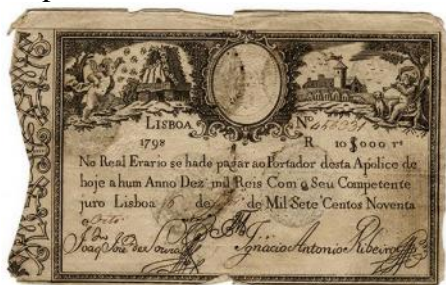 LISBOA Nº
1798 R 10$000 rs
No Real Erario se hade pagar ao Portador desta Apolice de
hoje a hum Anno Dez mil Reis Com o Seu Competente
juro Lisboa 16 de de Mil Sete Centos Noventa
e Oito
Joaqm José de Souza Ignacio Antonio Ribeiro